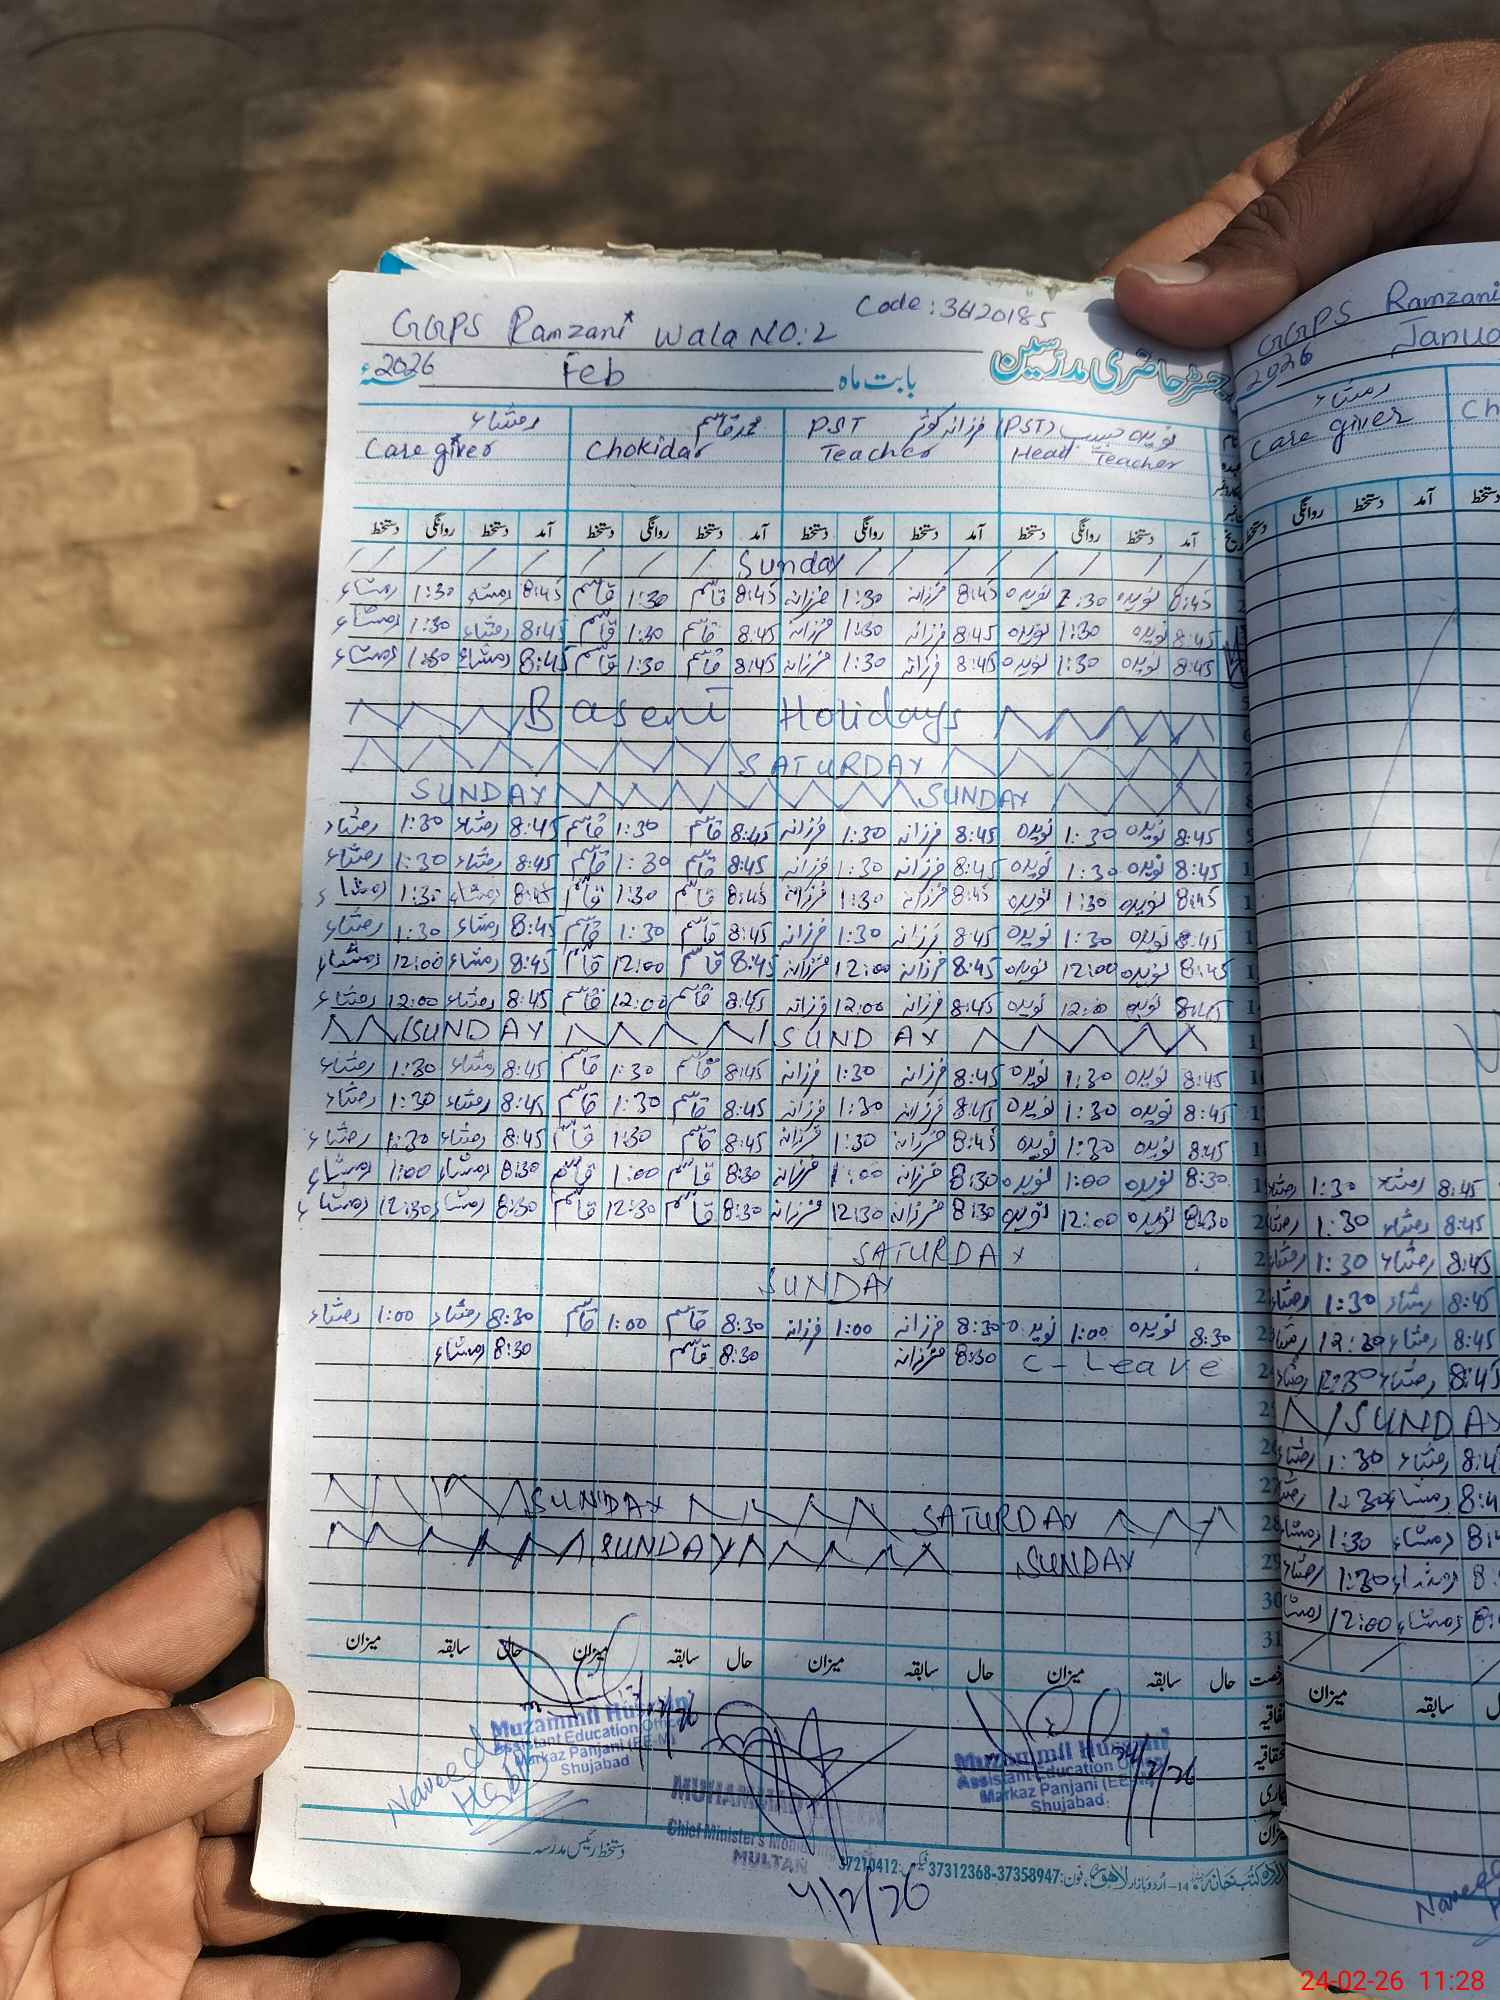 GGPS Ramzani Wala NO:2 Code: 36120185
رجسٹر حاضری مدرسین
بابت ماہ Feb 2026
نویدہ حبیب (PST) Head Teacher
فرزانہ کوثر PST Teacher
محمد قاسم Chokidar
رمشاء Care giver
آمد دستخط روانگی دستخط آمد دستخط روانگی دستخط آمد دستخط روانگی دستخط آمد دستخط روانگی دستخط
Sunday
8:45 نویدہ 1:30 نویدہ 8:45 فرزانہ 1:30 فرزانہ 8:45 قاسم 1:30 قاسم 8:45 رمشاء 1:30 رمشاء
8:45 نویدہ 1:30 نویدہ 8:45 فرزانہ 1:30 فرزانہ 8:45 قاسم 1:30 قاسم 8:45 رمشاء 1:30 رمشاء
8:45 نویدہ 1:30 نویدہ 8:45 فرزانہ 1:30 فرزانہ 8:45 قاسم 1:30 قاسم 8:45 رمشاء 1:30 رمشاء
Basent Holidays
SATURDAY
SUNDAY SUNDAY
8:45 نویدہ 1:30 نویدہ 8:45 فرزانہ 1:30 فرزانہ 8:45 قاسم 1:30 قاسم 8:45 رمشاء 1:30 رمشاء
8:45 نویدہ 1:30 نویدہ 8:45 فرزانہ 1:30 فرزانہ 8:45 قاسم 1:30 قاسم 8:45 رمشاء 1:30 رمشاء
8:45 نویدہ 1:30 نویدہ 8:45 فرزانہ 1:30 فرزانہ 8:45 قاسم 1:30 قاسم 8:45 رمشاء 1:30 رمشاء
8:45 نویدہ 1:30 نویدہ 8:45 فرزانہ 1:30 فرزانہ 8:45 قاسم 1:30 قاسم 8:45 رمشاء 1:30 رمشاء
8:45 نویدہ 12:00 نویدہ 8:45 فرزانہ 12:00 فرزانہ 8:45 قاسم 12:00 قاسم 8:45 رمشاء 12:00 رمشاء
8:45 نویدہ 12:00 نویدہ 8:45 فرزانہ 12:00 فرزانہ 8:45 قاسم 12:00 قاسم 8:45 رمشاء 12:00 رمشاء
SUNDAY SUNDAY
8:45 نویدہ 1:30 نویدہ 8:45 فرزانہ 1:30 فرزانہ 8:45 قاسم 1:30 قاسم 8:45 رمشاء 1:30 رمشاء
8:45 نویدہ 1:30 نویدہ 8:45 فرزانہ 1:30 فرزانہ 8:45 قاسم 1:30 قاسم 8:45 رمشاء 1:30 رمشاء
8:45 نویدہ 1:30 نویدہ 8:45 فرزانہ 1:30 فرزانہ 8:45 قاسم 1:30 قاسم 8:45 رمشاء 1:30 رمشاء
8:30 نویدہ 1:00 نویدہ 8:30 فرزانہ 1:00 فرزانہ 8:30 قاسم 1:00 قاسم 8:30 رمشاء 1:00 رمشاء
8:30 نویدہ 12:00 نویدہ 8:30 فرزانہ 12:30 فرزانہ 8:30 قاسم 12:30 قاسم 8:30 رمشاء 12:30 رمشاء
SATURDAY
SUNDAY
8:30 نویدہ 1:00 نویدہ 8:30 فرزانہ 1:00 فرزانہ 8:30 قاسم 1:00 قاسم 8:30 رمشاء 1:00 رمشاء
C-Leave 8:30 فرزانہ 8:30 قاسم 8:30 رمشاء
SUNDAY SATURDAY
SUNDAY SUNDAY
حال سابقہ میزان حال سابقہ میزان حال سابقہ میزان حال سابقہ میزان
Muzammil Hussain
Assistant Education Officer
Markaz Panjani (EE-M)
Shujabad
Naveeda Habib
MUHAMMAD
Chief Minister's Moni
MULTAN
4/2/26
Muzammil Hussain
Assistant Education Officer
Markaz Panjani (EE-M)
Shujabad
24/2/26
دستخط رئیس مدرسہ
اردو بازار لاہور فون: 37312368-37358947 فیکس: 37210412
GGPS Ramzani
2026 Janua
رمشاء
Care giver Ch
آمد دستخط روانگی دستخط
8:45 رمشاء 1:30 رمشاء
8:45 رمشاء 1:30 رمشاء
8:45 رمشاء 1:30 رمشاء
8:45 رمشاء 1:30 رمشاء
8:45 رمشاء 12:30 رمشاء
8:45 رمشاء 12:30 رمشاء
SUNDAY
8:4 رمشاء 1:30 رمشاء
8:4 رمشاء 1:30
8:4 رمشاء 1:30 رمشاء
8: رمشاء 1:30 رمشاء
8: رمشاء 12:00 رمشاء
سابقہ میزان
24-02-26 11:28